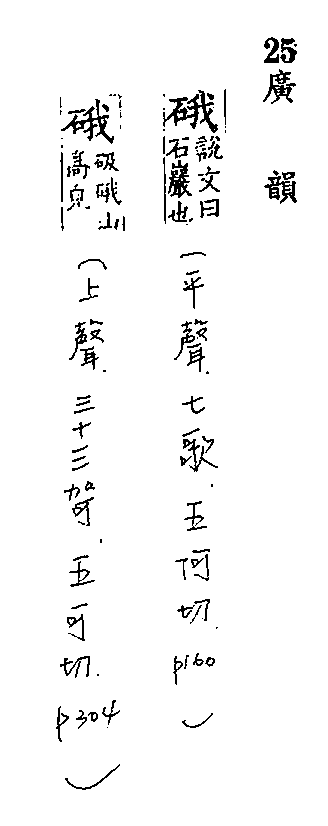 25廣韻
硪說文曰石巖也(平聲.七歌.五何切.p160)
硪砐硪山高皃(上聲.三十三哿.五可切.p304)